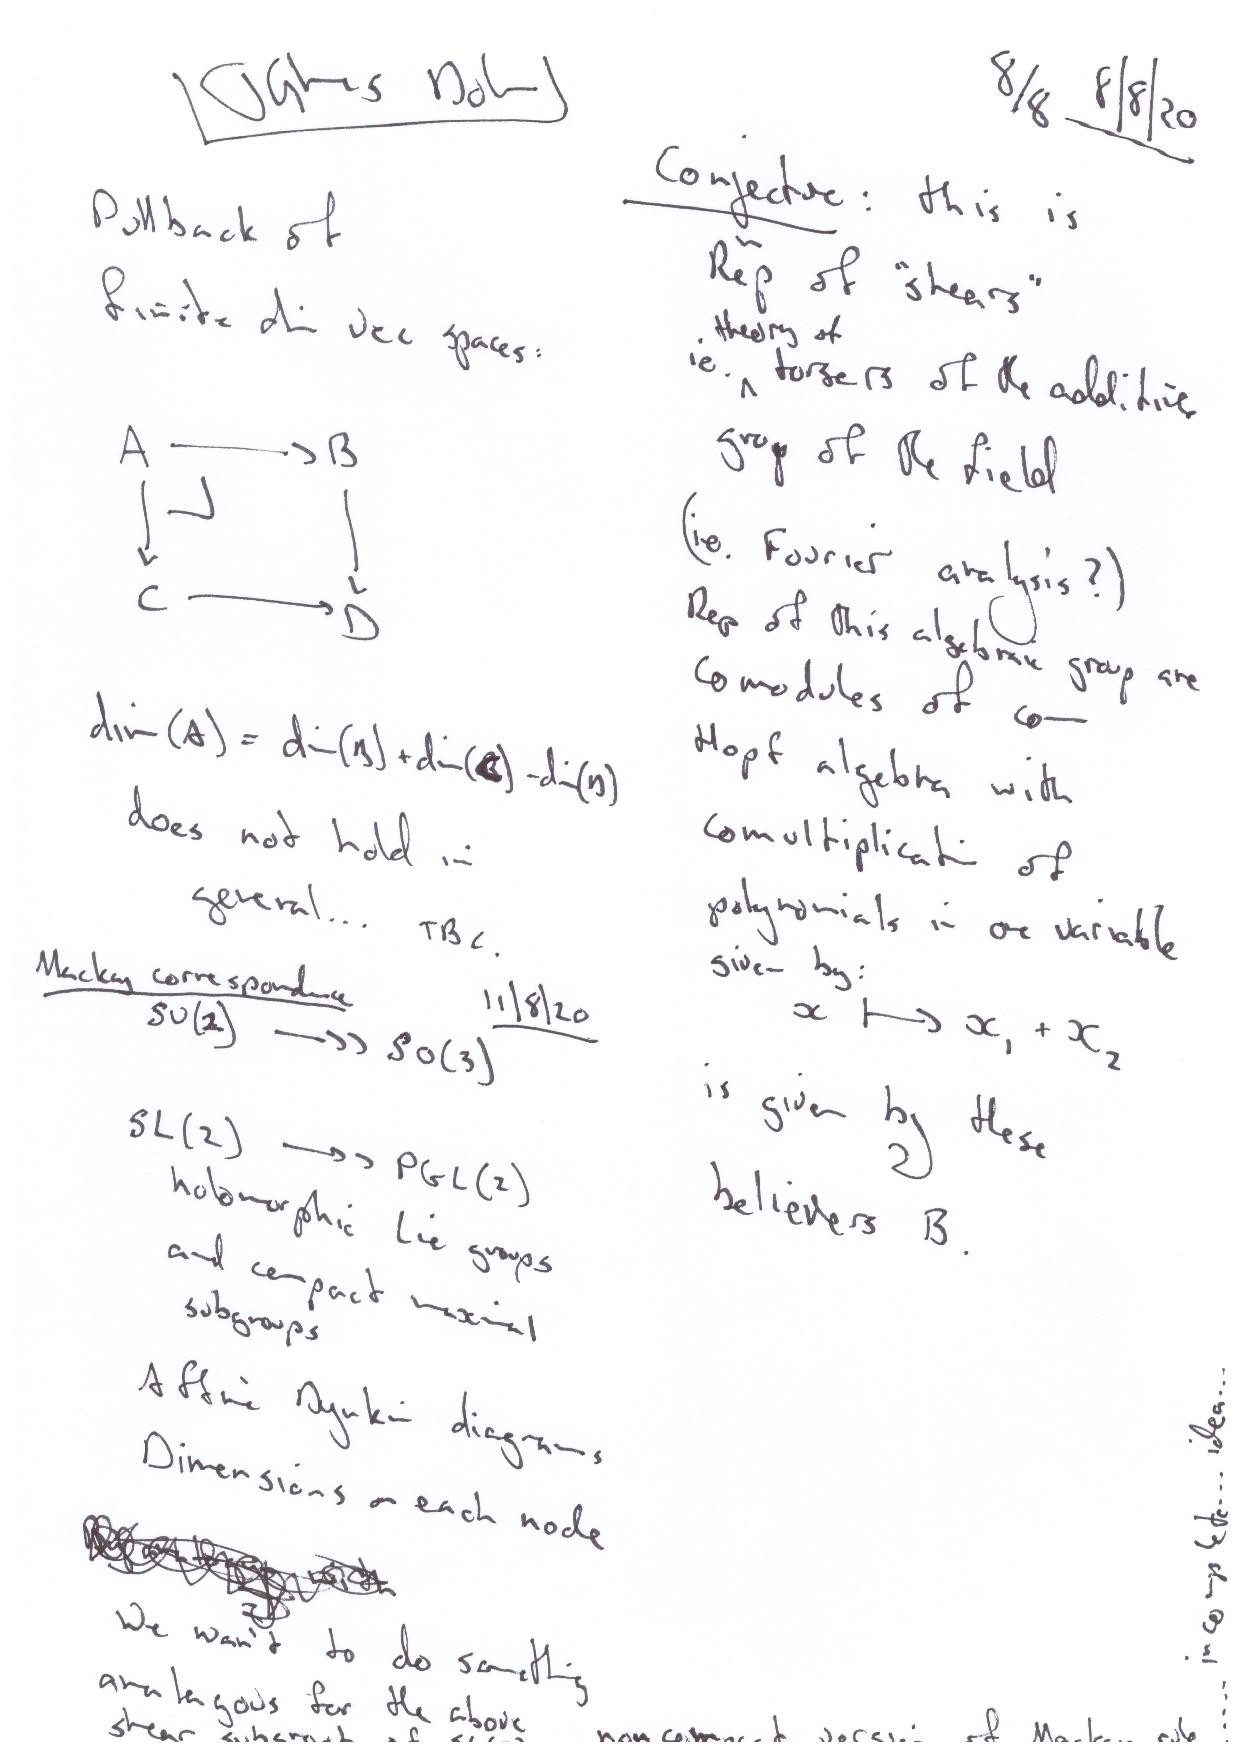 8/8 8/8/20
Pullback of
finite dim vec spaces:
A → B
↓ ↓
C → D
dim(A) = dim(B) + dim(C) - dim(D)
does not hold in
general... TBC.
Mackay correspondence
11/8/20
SU(2) →>> SO(3)
SL(2) →>> PGL(2)
holomorphic Lie groups
and compact maximal
subgroups
Affine Dynkin diagrams
Dimensions on each node
We wan't to do something
analagous for the above
shear subgroup of
noncompact version of Mackay rule
Conjecture: this is
Rep of "shears"
theory of
ie. ∧ torsers of the additive
group of the field
(ie. Fourier analysis?)
Rep of this algebraic group are
comodules of co—
Hopf algebra with
comultiplication of
polynomials in one variable
given by:
x ↦ x₁ + x₂
is given by these
2
believers B.
incomplete... idea...